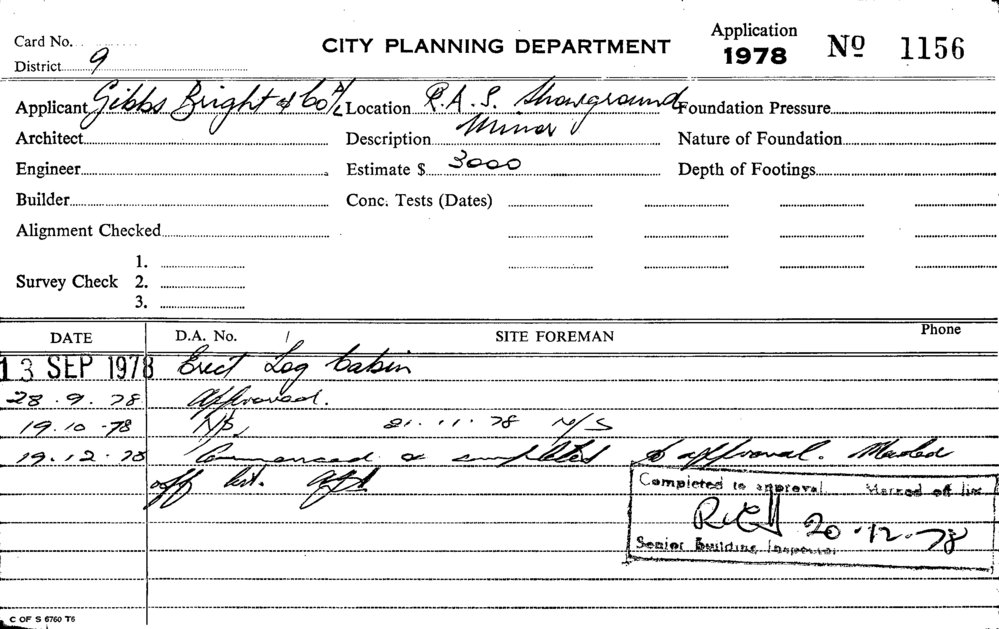 Card No.
CITY PLANNING DEPARTMENT
Application
1978 No 1156
District 9
Applicant Gibbs Bright & Co P/L Location R.A.S. Showground Foundation Pressure
Architect Description Minor Nature of Foundation
Engineer Estimate $ 3000 Depth of Footings
Builder Conc. Tests (Dates)
Alignment Checked
1.
Survey Check 2.
3.
DATE D.A. No. / SITE FOREMAN Phone
13 SEP 1978 Erect Log Cabin
28.9.78 Approved.
19.10.78 N/S 21.11.78 N/S
19.12.78 Commenced & completed to approval. Marked
off list.
Completed to approval Marked off list
20.12.78
Senior Building Inspector
C OF S 6760 T6